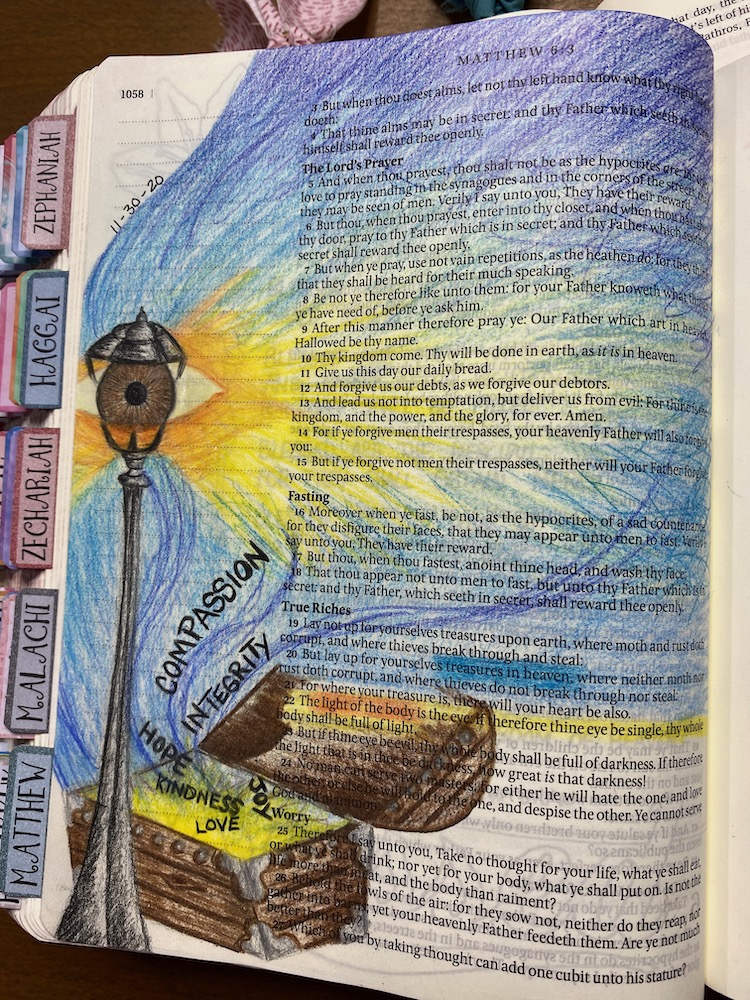 MATTHEW 6:3
1058
hat day, the
t's left of hi
athros, E
11-30-20
ZEPHANIAH
HAGGAI
ZECHARIAH
MALACHI
MATTHEW
3 But when thou doest alms, let not thy left hand know what thy right
doeth:
4 That thine alms may be in secret: and thy Father which seeth
himself shall reward thee openly.
The Lord's Prayer
5 And when thou prayest, thou shalt not be as the hypocrites are:
love to pray standing in the synagogues and in the corners of the streets,
they may be seen of men. Verily I say unto you, They have their reward.
6 But thou, when thou prayest, enter into thy closet, and when thou
thy door, pray to thy Father which is in secret; and thy Father which
secret shall reward thee openly.
7 But when ye pray, use not vain repetitions, as the heathen do: for they
that they shall be heard for their much speaking.
8 Be not ye therefore like unto them: for your Father knoweth what
ye have need of, before ye ask him.
9 After this manner therefore pray ye: Our Father which art in heaven,
Hallowed be thy name.
10 Thy kingdom come. Thy will be done in earth, as it is in heaven.
11 Give us this day our daily bread.
12 And forgive us our debts, as we forgive our debtors.
13 And lead us not into temptation, but deliver us from evil: For thine is
kingdom, and the power, and the glory, for ever. Amen.
14 For if ye forgive men their trespasses, your heavenly Father will also forgive
you:
15 But if ye forgive not men their trespasses, neither will your Father forgive
your trespasses.
Fasting
16 Moreover when ye fast, be not, as the hypocrites, of a sad countenance:
for they disfigure their faces, that they may appear unto men to fast. Verily
say unto you, They have their reward.
17 But thou, when thou fastest, anoint thine head, and wash thy face;
18 That thou appear not unto men to fast, but unto thy Father which is in
secret: and thy Father, which seeth in secret, shall reward thee openly.
True Riches
19 Lay not up for yourselves treasures upon earth, where moth and rust doth
corrupt, and where thieves break through and steal:
20 But lay up for yourselves treasures in heaven, where neither moth nor
rust doth corrupt, and where thieves do not break through nor steal:
21 For where your treasure is, there will your heart be also.
22 The light of the body is the eye: if therefore thine eye be single, thy whole
body shall be full of light.
23 But if thine eye be evil, thy whole body shall be full of darkness. If therefore
the light that is in thee be darkness, how great is that darkness!
24 No man can serve two masters: for either he will hate the one, and love
the other; or else he will hold to the one, and despise the other. Ye cannot serve
God and mammon.
Worry
25 Therefore I say unto you, Take no thought for your life, what ye shall eat,
or what ye shall drink; nor yet for your body, what ye shall put on. Is not the
life more than meat, and the body than raiment?
26 Behold the fowls of the air: for they sow not, neither do they reap, nor
gather into barns; yet your heavenly Father feedeth them. Are ye not much
better than they?
27 Which of you by taking thought can add one cubit unto his stature?
COMPASSION
INTEGRITY
HOPE
JOY
KINDNESS
LOVE